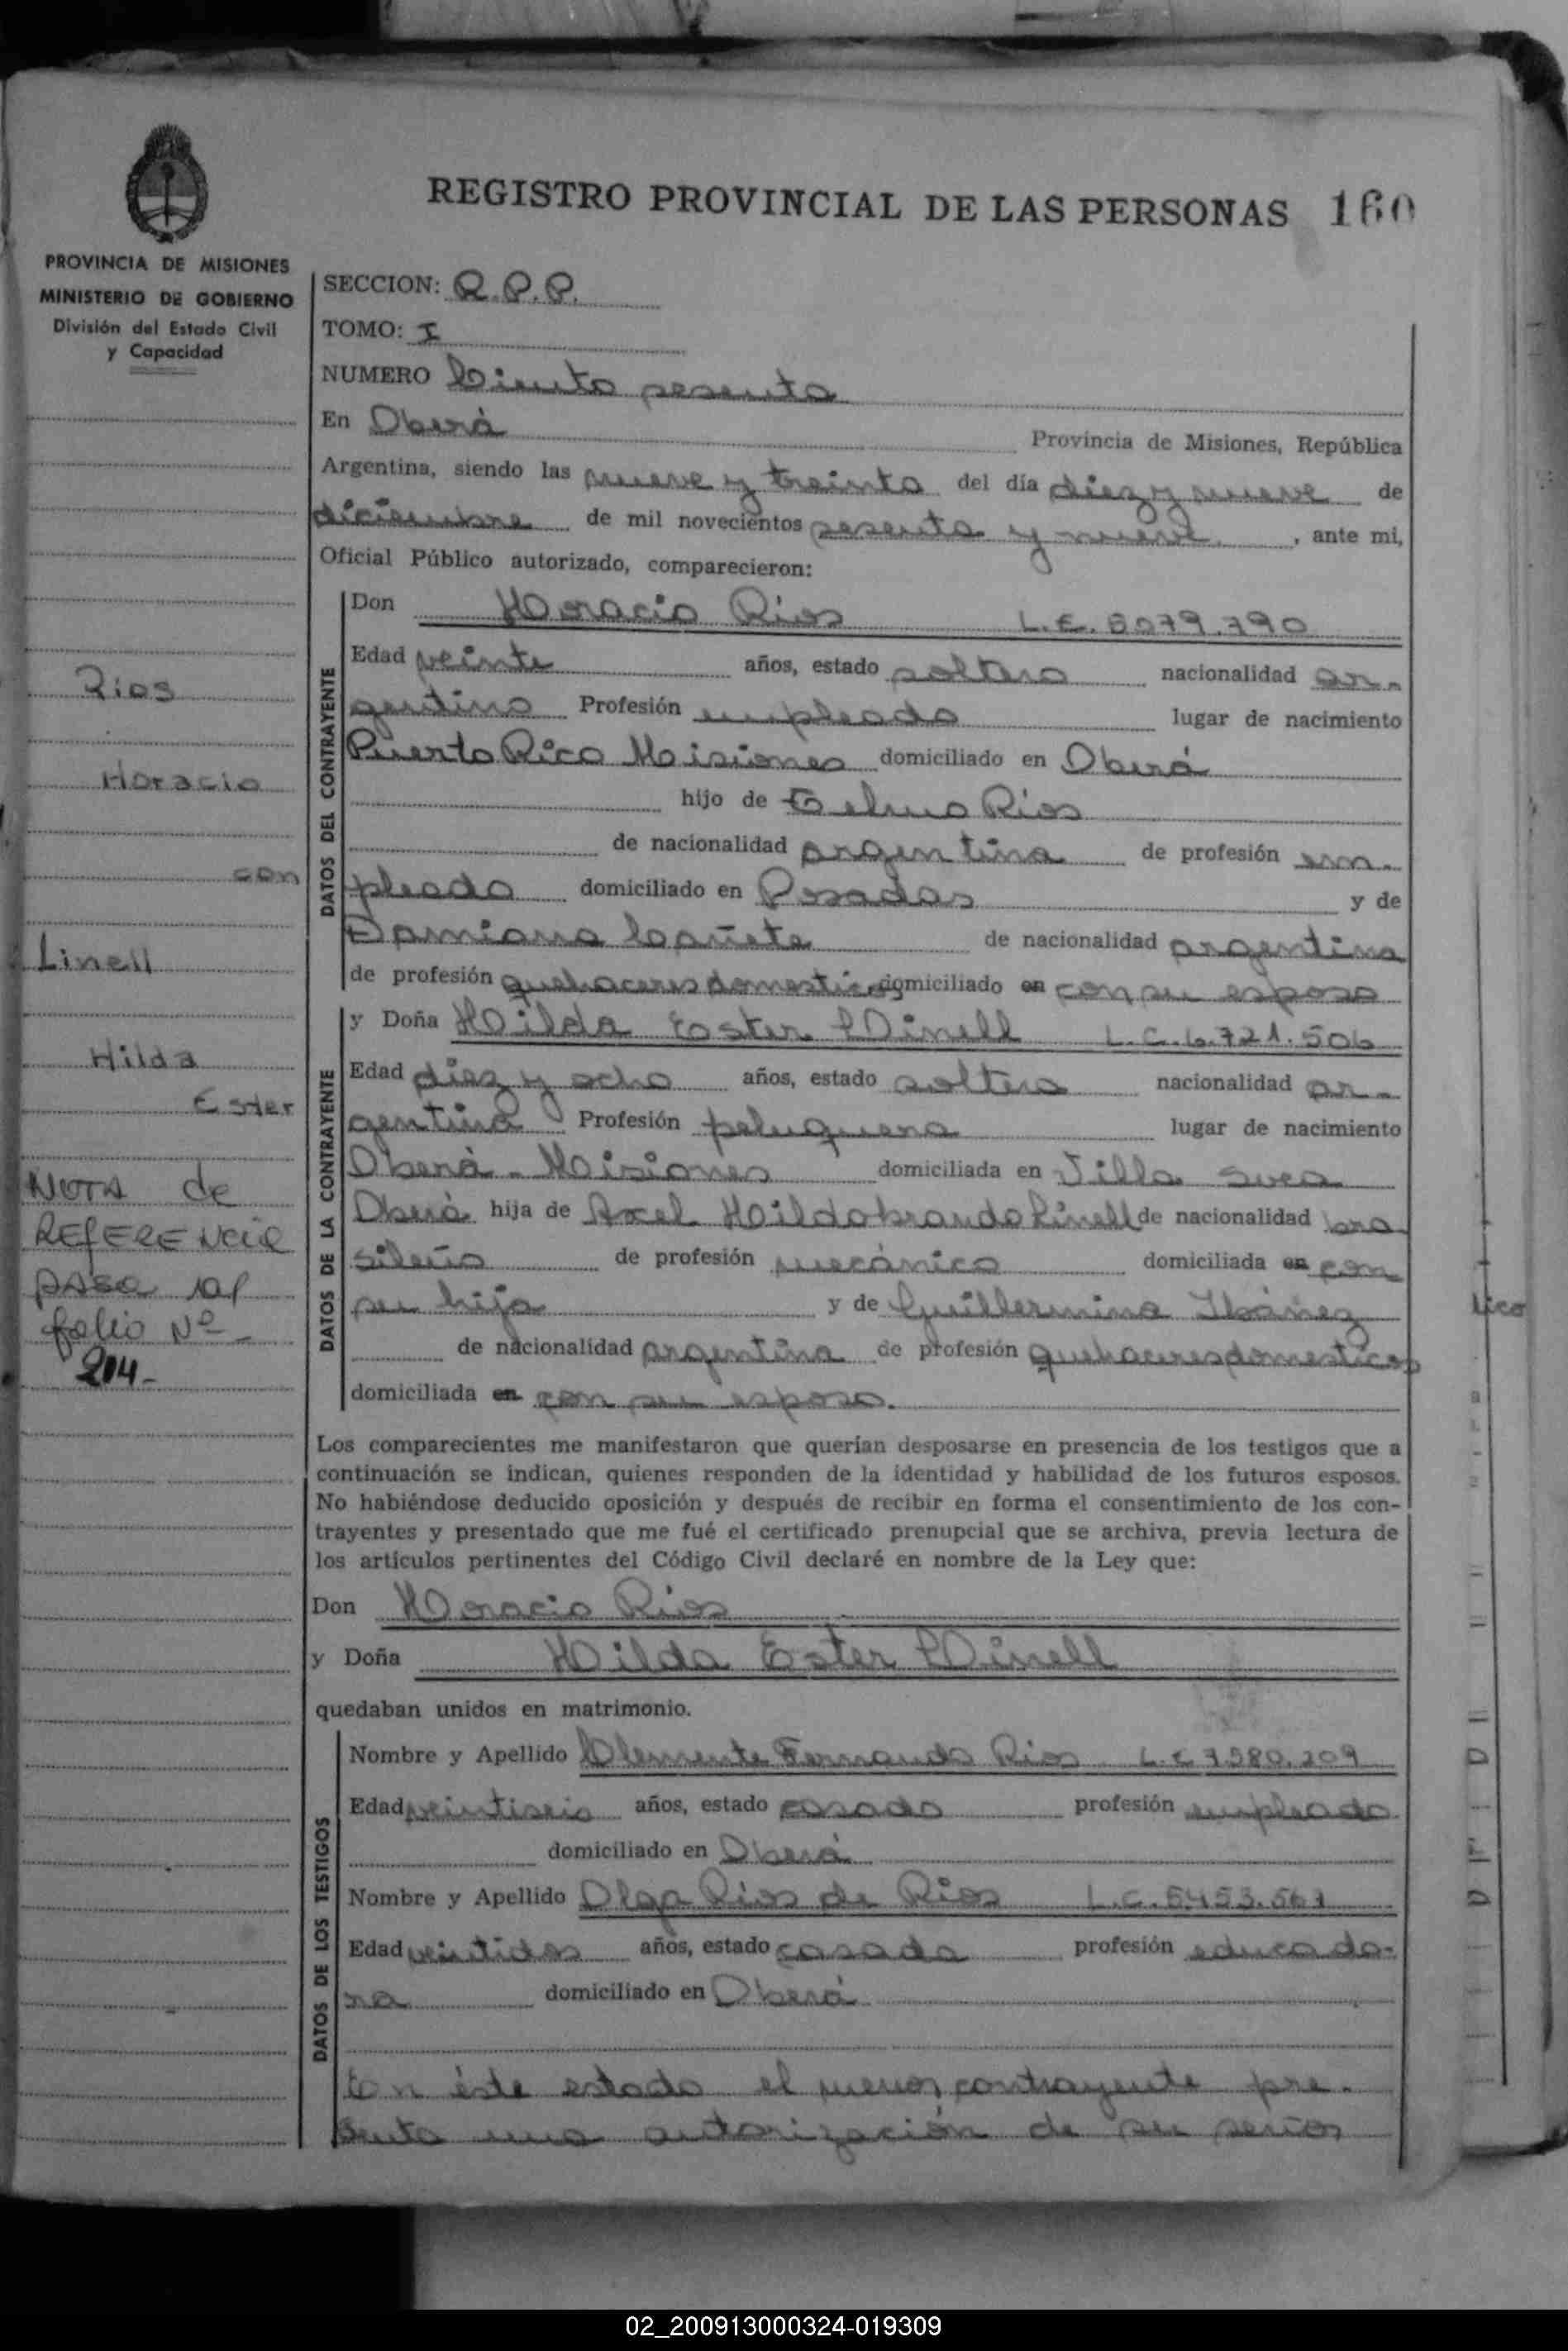 REGISTRO PROVINCIAL DE LAS PERSONAS 160
PROVINCIA DE MISIONES
MINISTERIO DE GOBIERNO
División del Estado Civil
y Capacidad
SECCION: R.P.P.
TOMO: I
NUMERO Ciento sesenta
En Oberá Provincia de Misiones, República
Argentina, siendo las nueve y treinta del día diez y nueve de
diciembre de mil novecientos sesenta y nueve, ante mi,
Oficial Público autorizado, comparecieron:
Rios
Horacio
con
Linell
Hilda
Ester
NOTA de
REFERENCIA
pasa al
folio Nº
214-
DATOS DEL CONTRAYENTE
Don Horacio Rios L.E. 8079.790
Edad veinte años, estado soltero nacionalidad ar-
gentino Profesión empleado lugar de nacimiento
Puerto Rico Misiones domiciliado en Oberá
hijo de Telmo Rios
de nacionalidad argentina de profesión em-
pleado domiciliado en Posadas y de
Damiana Cañete de nacionalidad argentina
de profesión quehaceres domesticos domiciliado en con su esposo
DATOS DE LA CONTRAYENTE
y Doña Hilda Ester Linell L.C. 6.721.506
Edad diez y ocho años, estado soltera nacionalidad ar-
gentina Profesión peluquera lugar de nacimiento
Oberá - Misiones domiciliada en Villa Svea
Oberá hija de Axel Hildobrando Linell de nacionalidad bra
sileño de profesión mecánico domiciliada en con
su hija y de Guillermina Ibáñez
de nacionalidad argentina de profesión quehaceres domesticos
domiciliada en con su esposo.
Los comparecientes me manifestaron que querían desposarse en presencia de los testigos que a
continuación se indican, quienes responden de la identidad y habilidad de los futuros esposos.
No habiéndose deducido oposición y después de recibir en forma el consentimiento de los con-
trayentes y presentado que me fué el certificado prenupcial que se archiva, previa lectura de
los artículos pertinentes del Código Civil declaré en nombre de la Ley que:
Don Horacio Rios
y Doña Hilda Ester Linell
quedaban unidos en matrimonio.
DATOS DE LOS TESTIGOS
Nombre y Apellido Clemente Fernando Rios L.E 7.580.209
Edad veintiseis años, estado casado profesión empleado
domiciliado en Oberá
Nombre y Apellido Olga Rios de Rios L.C. 5.453.567
Edad veintidos años, estado casada profesión educado-
ra domiciliado en Oberá
En éste estado el menor contrayente pre-
senta una autorización de su señor
02_200913000324-019309